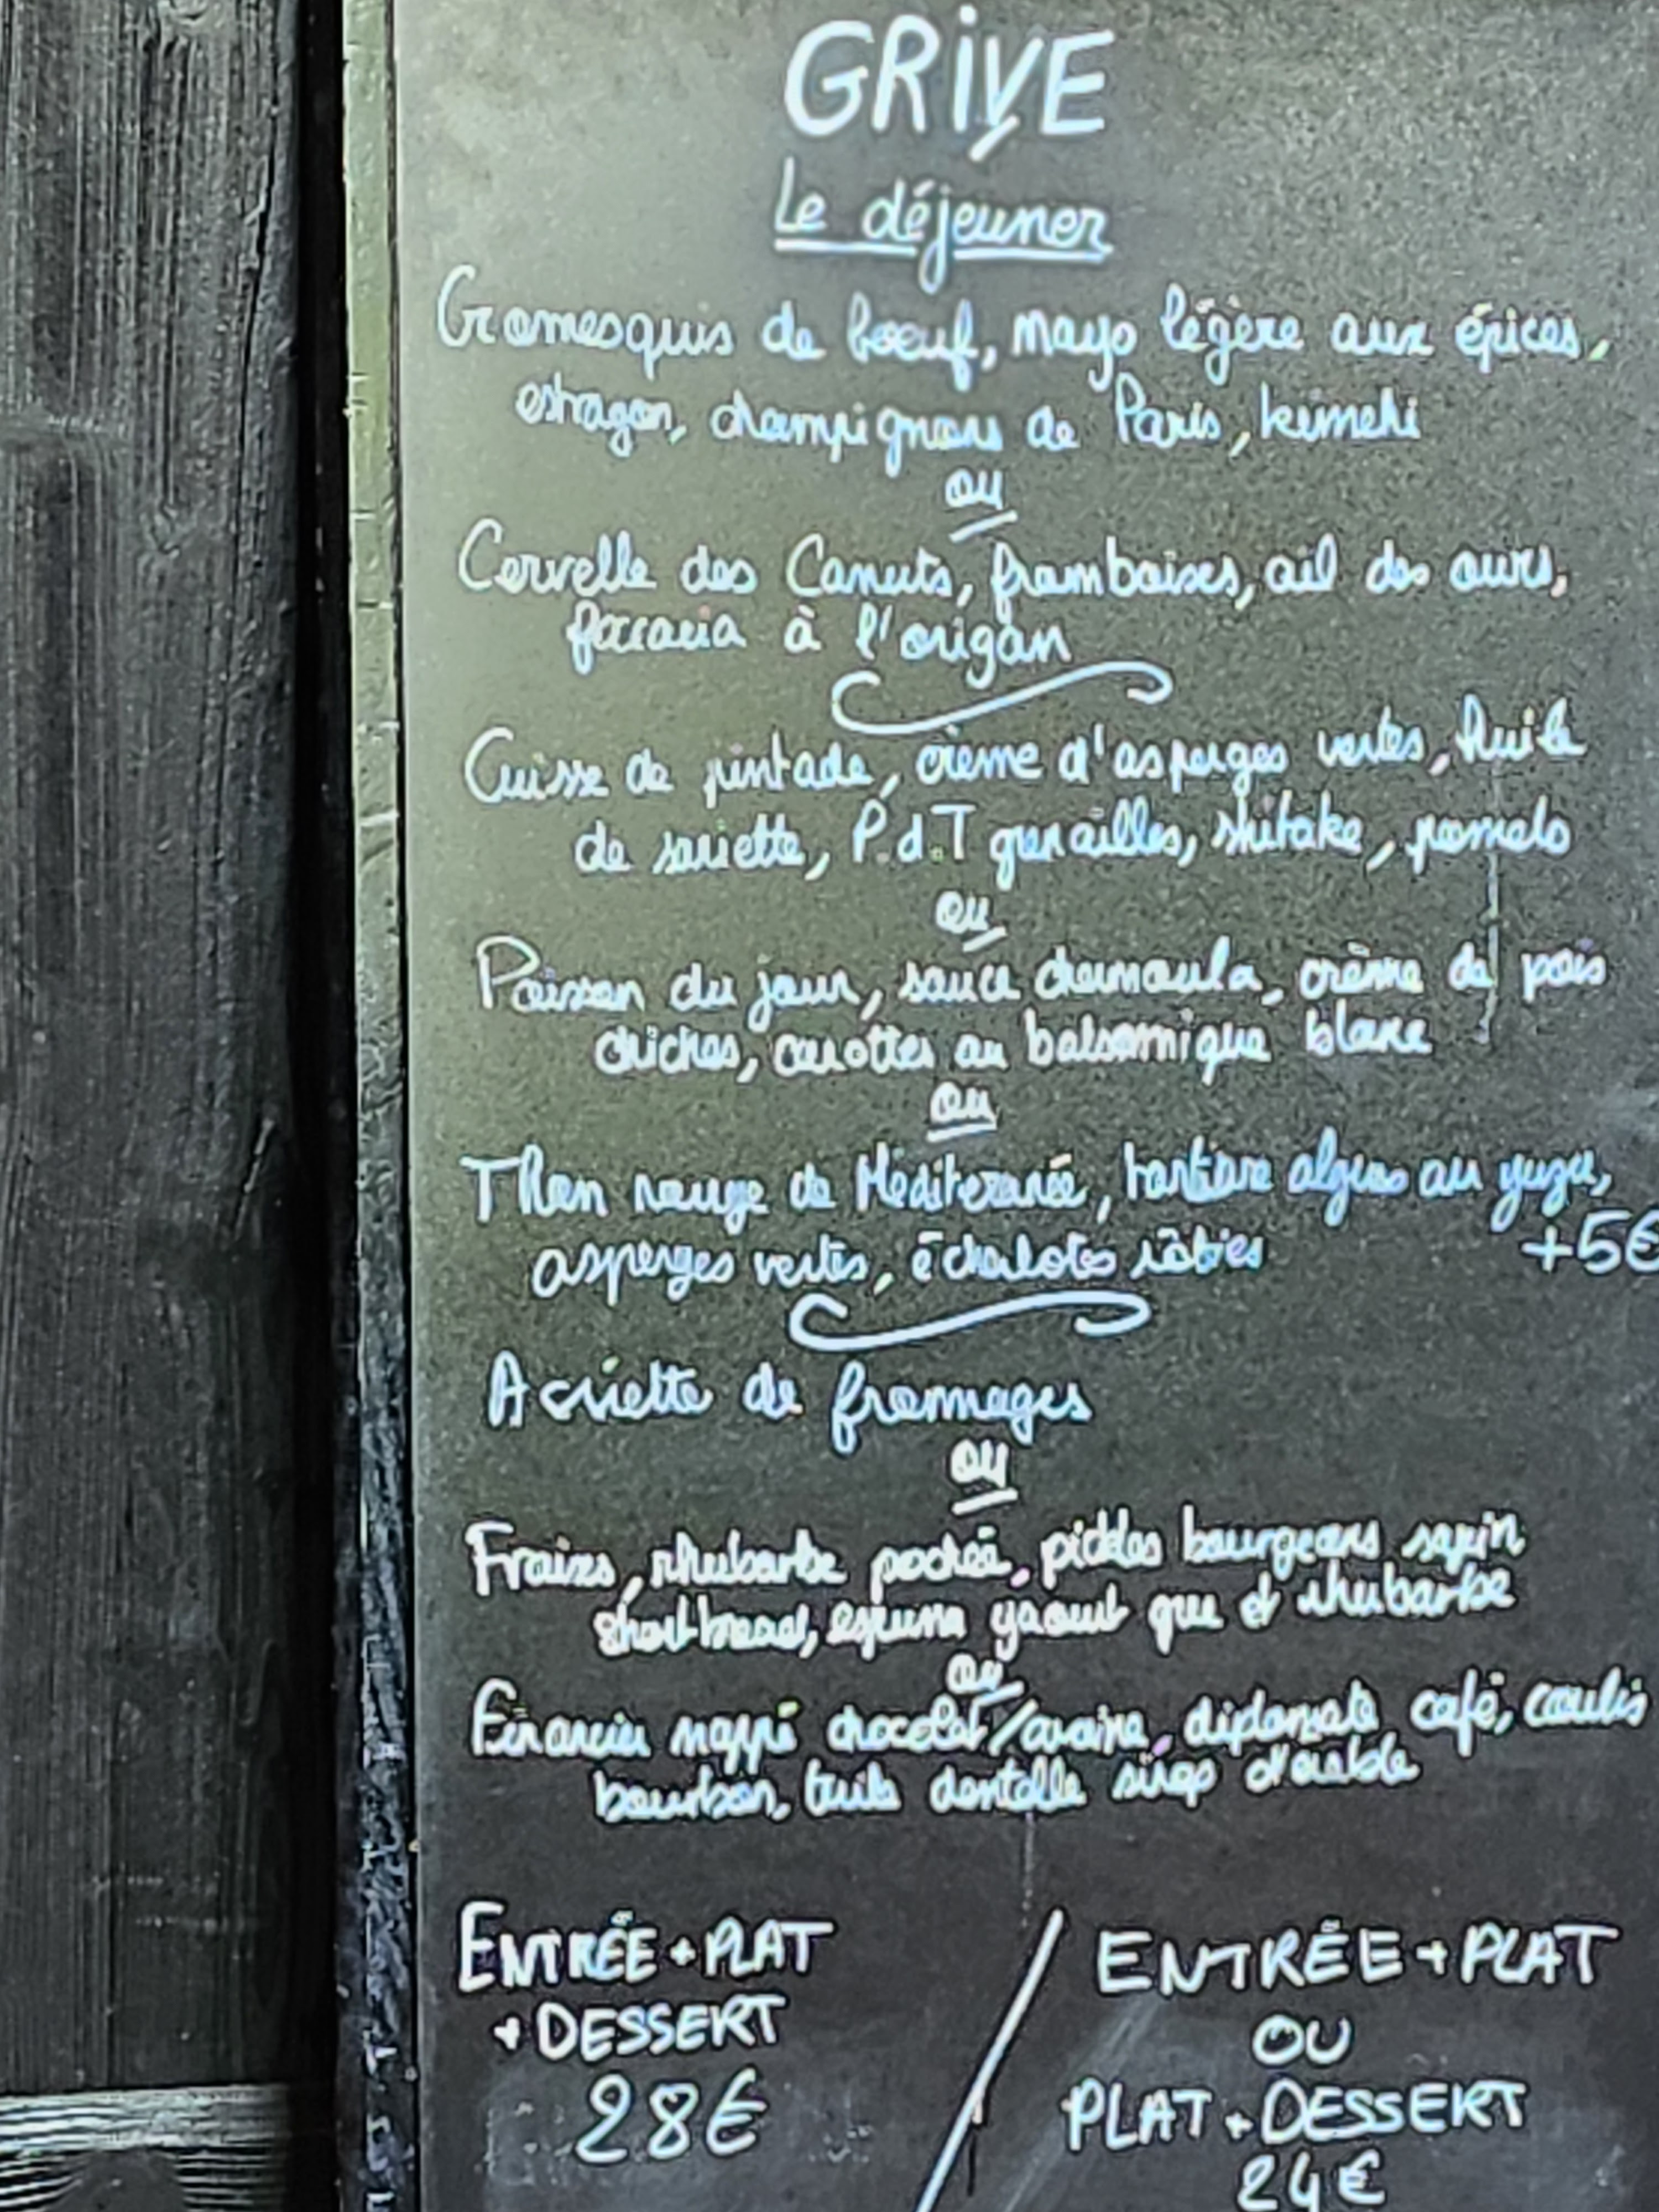 GRIVE
Le déjeuner
Cromesquis de boeuf, mayo légère aux épices,
estragon, champignons de Paris, kimchi
ou
Cervelle des Canuts, framboises, ail des ours,
foccacia à l'origan
Cuisse de pintade, crème d'asperges vertes, huile
de sariette, P.d.T grenailles, shitake, pomelo
ou
Poisson du jour, sauce chermoula, crème de pois
chiches, carottes au balsamique blanc
ou
Thon rouge de Méditerranée, tartare algues au yuzu,
asperges vertes, échalotes rôties +5€
Assiette de fromages
ou
Fraises, rhubarbe pochée, pickles bourgeons sapin
shortbread, espuma yaourt grec et rhubarbe
ou
Financier nappé chocolat/avoine, diplomate café, coulis
bourbon, tuile dentelle sirop d'érable
ENTRÉE + PLAT
+ DESSERT
28€
ENTRÉE + PLAT
OU
PLAT + DESSERT
24€